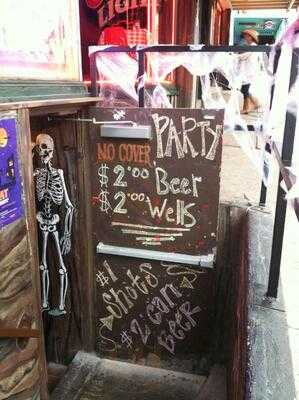 LIGHT
PARTY
NO COVER
$2.00 Beer
$2.00 Wells
$1 Shots
$2 Can Beer